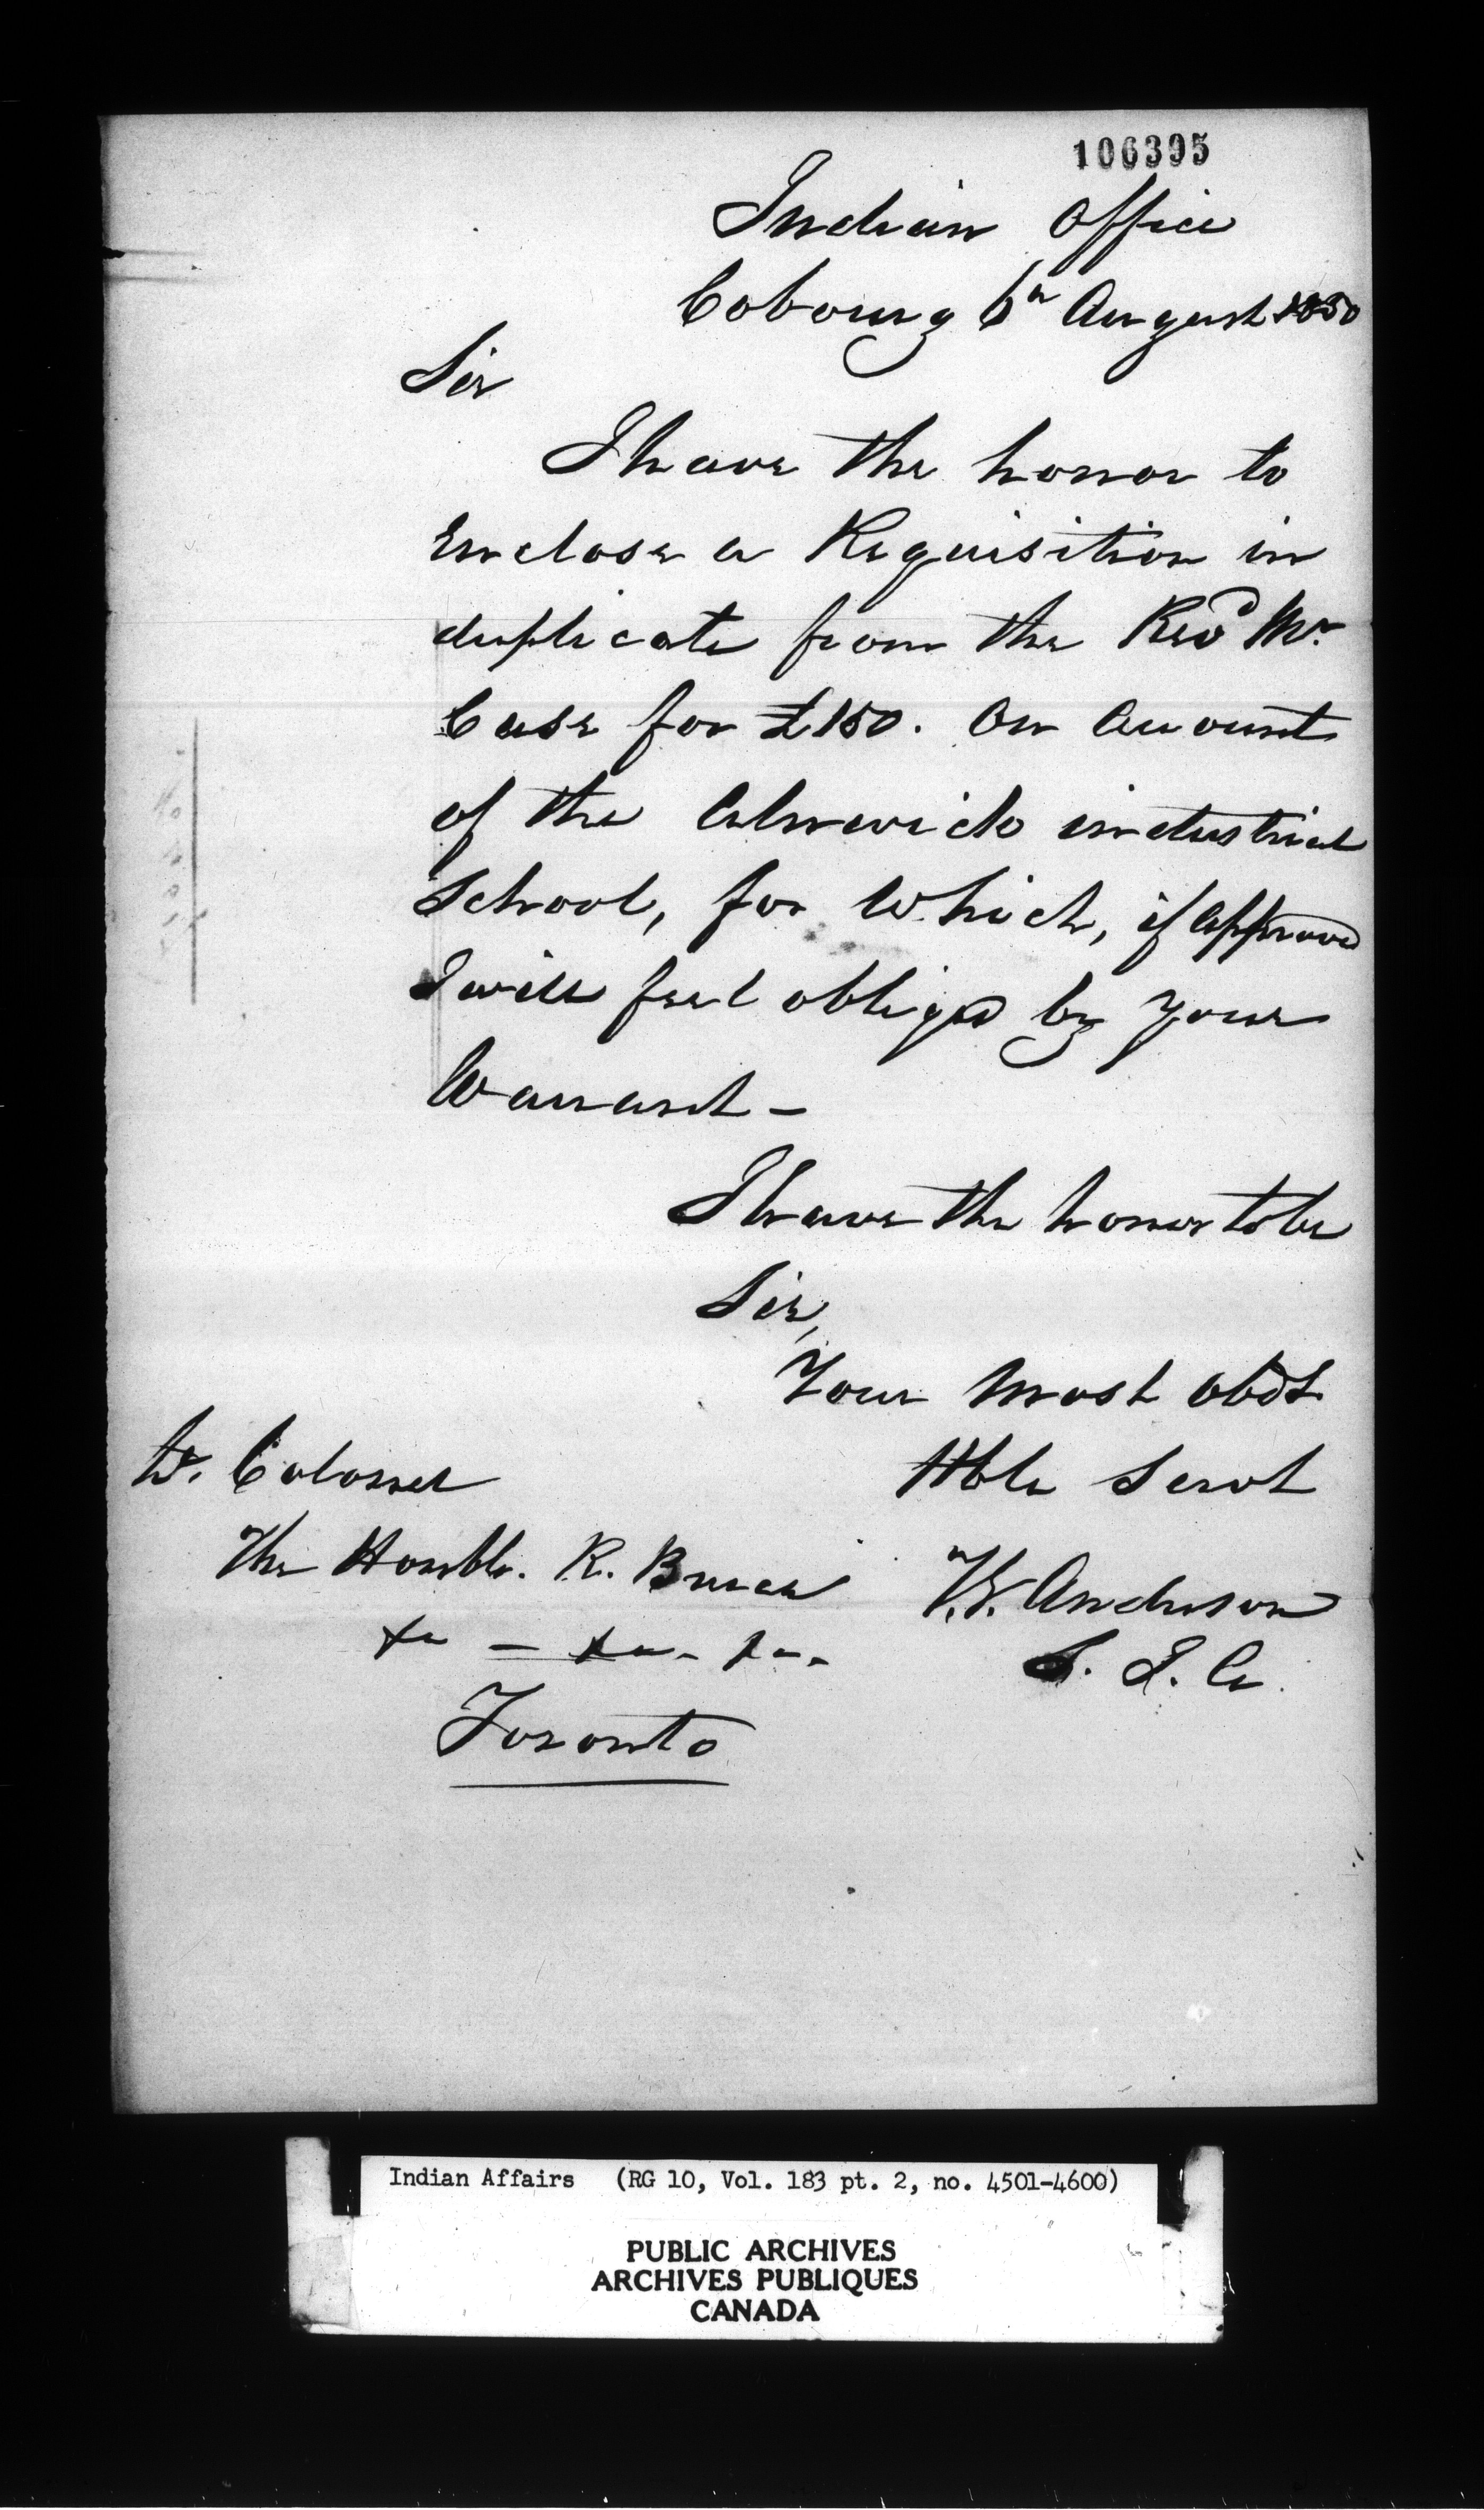 106395
Indian Office
Cobourg 6th August 1850
Sir
I have the honor to
Enclose a Requisition in
duplicate from the Revd Mr.
Case for £150. On Account
of the Alnwick industrial
School, for Which, if Approved
I will feel obliged by your
Warrant -
I have the honor to be
Sir,
Your Most Obdt
Hble Servt
T.G. Anderson
S. I. A.
Lt. Colonel
The Honble. R. Bruce
&c - &c - &c -
Toronto
Indian Affairs (RG 10, Vol. 183 pt. 2, no. 4501-4600)
PUBLIC ARCHIVES
ARCHIVES PUBLIQUES
CANADA